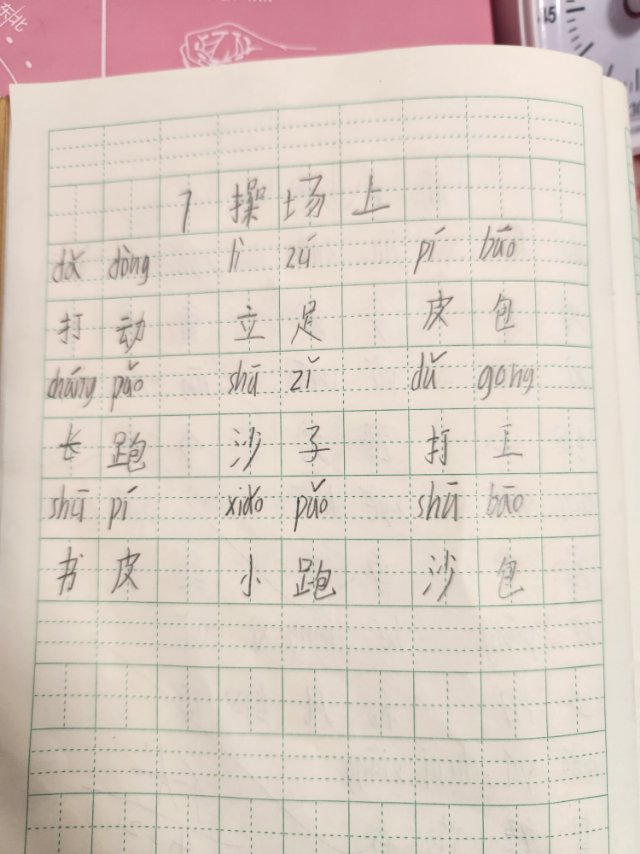 东北
45
7 操场上
dǎ dòng lì zú pí bāo
打动 立足 皮包
cháng pǎo shā zǐ dǎ gong
长跑 沙子 打工
shū pí xiǎo pǎo shā bāo
书皮 小跑 沙包